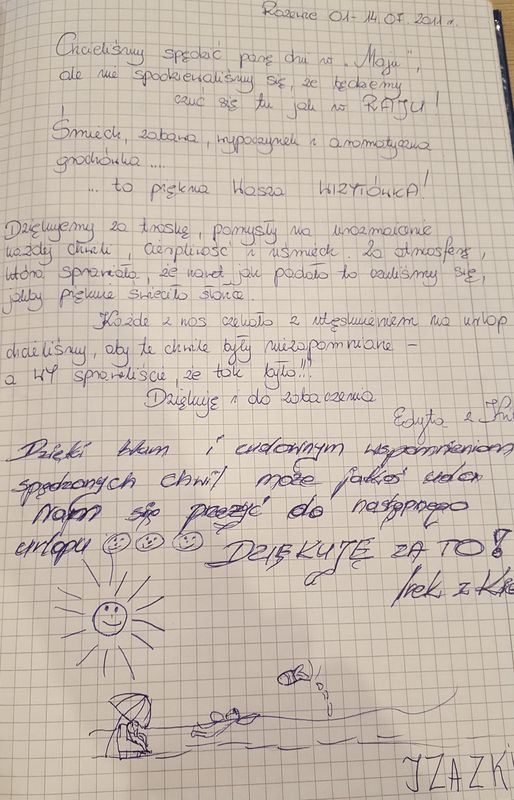 01-14.07.2011 r.
Chcieliśmy spędzić parę dni w „Maju",
ale nie spodziewaliśmy się, że będziemy
czuć się tu jak w RAJU!
Śmiech, zabawa, wypoczynek i aromatyczna
grochówka ....
... to piękna Wasza WIZYTÓWKA!
Dziękujemy za troskę, pomysły na urozmaicenie
każdej chwili, cierpliwość i uśmiech. Za atmosferę,
która sprawiała, że nawet jak padało to czuliśmy się,
jakby pięknie świeciło słońce.
Każde z nas czekało z utęsknieniem na urlop
chcieliśmy, aby te chwile były niezapomniane -
a WY sprawiliście, że tak było!!!
Dziękuję i do zobaczenia
Edyta z
Dzięki Wam i cudownym wspomnieniom
spędzonych chwil może jakoś uda
Nam się przeżyć do następnego
urlopu DZIĘKUJĘ ZA TO!
Irek z